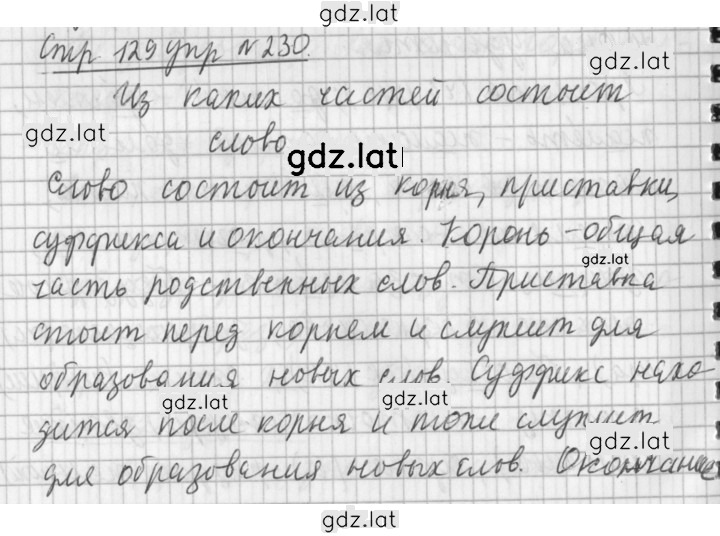 gdz.lat
Стр. 129 упр N 230.
gdz.lat
Из каких частей состоит
gdz.lat
слово
gdz.lat
Слово состоит из корня, приставки,
суффикса и окончания. Корень - общая
gdz.lat
часть родственных слов. Приставка
стоит перед корнем и служит для
образования новых слов. Суффикс нахо-
gdz.lat
дится после корня и тоже служит
gdz.lat
для образования новых слов. Окончание
gdz.lat